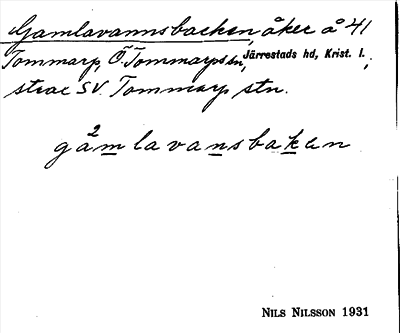 Gamlavannsbacken, åker å 41
Tommarp, Ö. Tommarps sn, Järrestads hd, Krist. l.,
strax SV. Tommarp stn.
2
gamlavansbakan
NILS NILSSON 1931